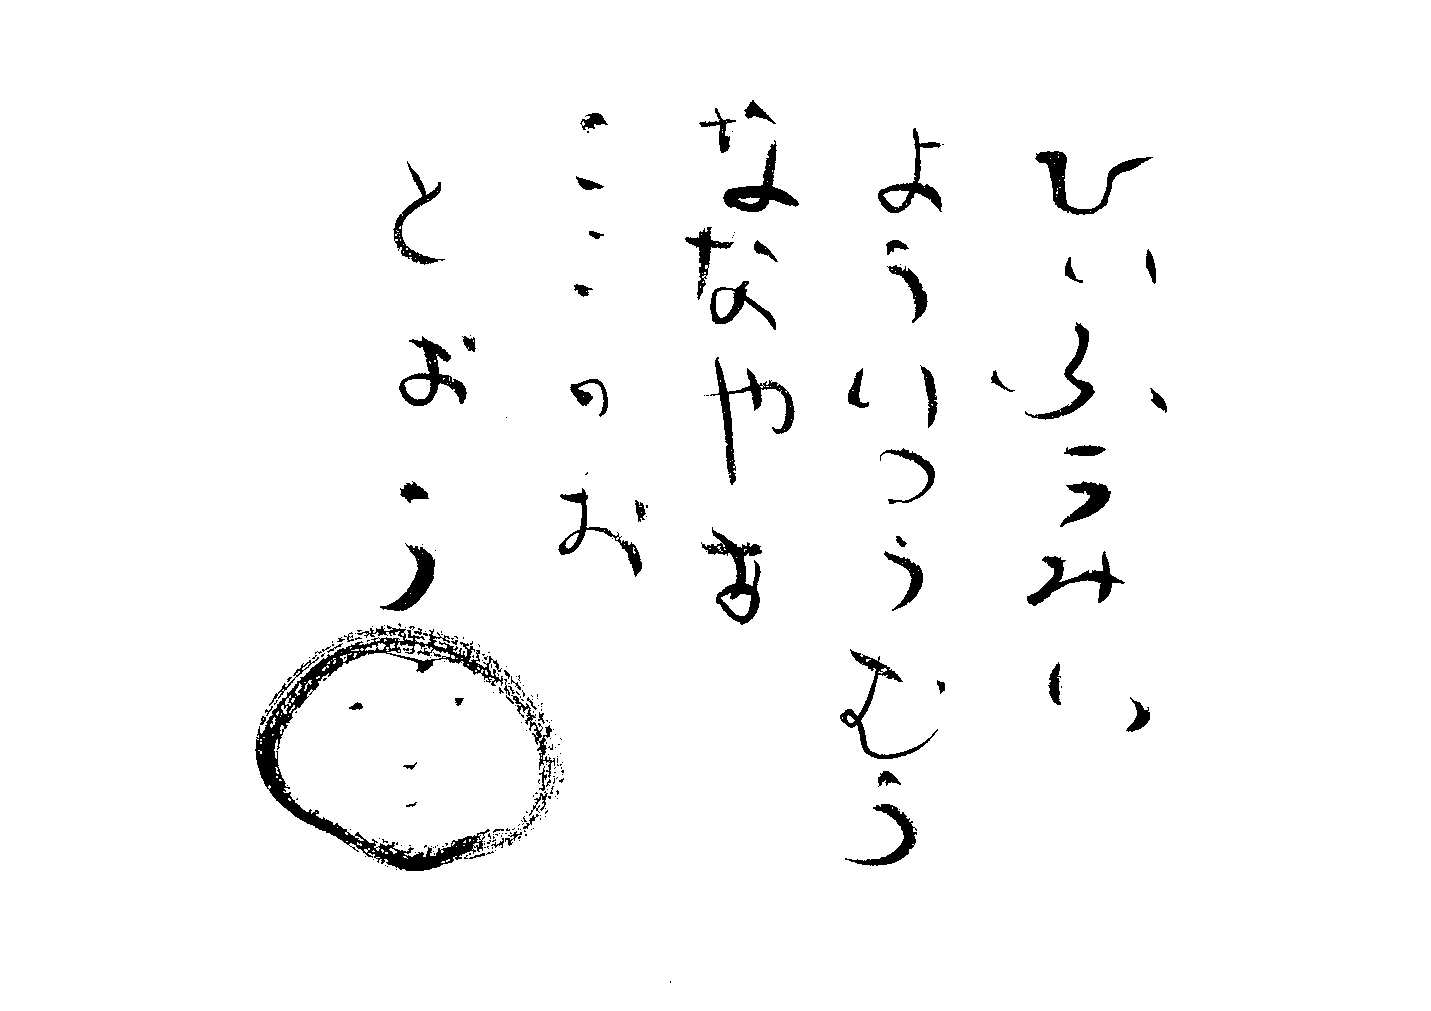 ひいふうみい
よういつうむう
ななやあ
ここのお
とおう